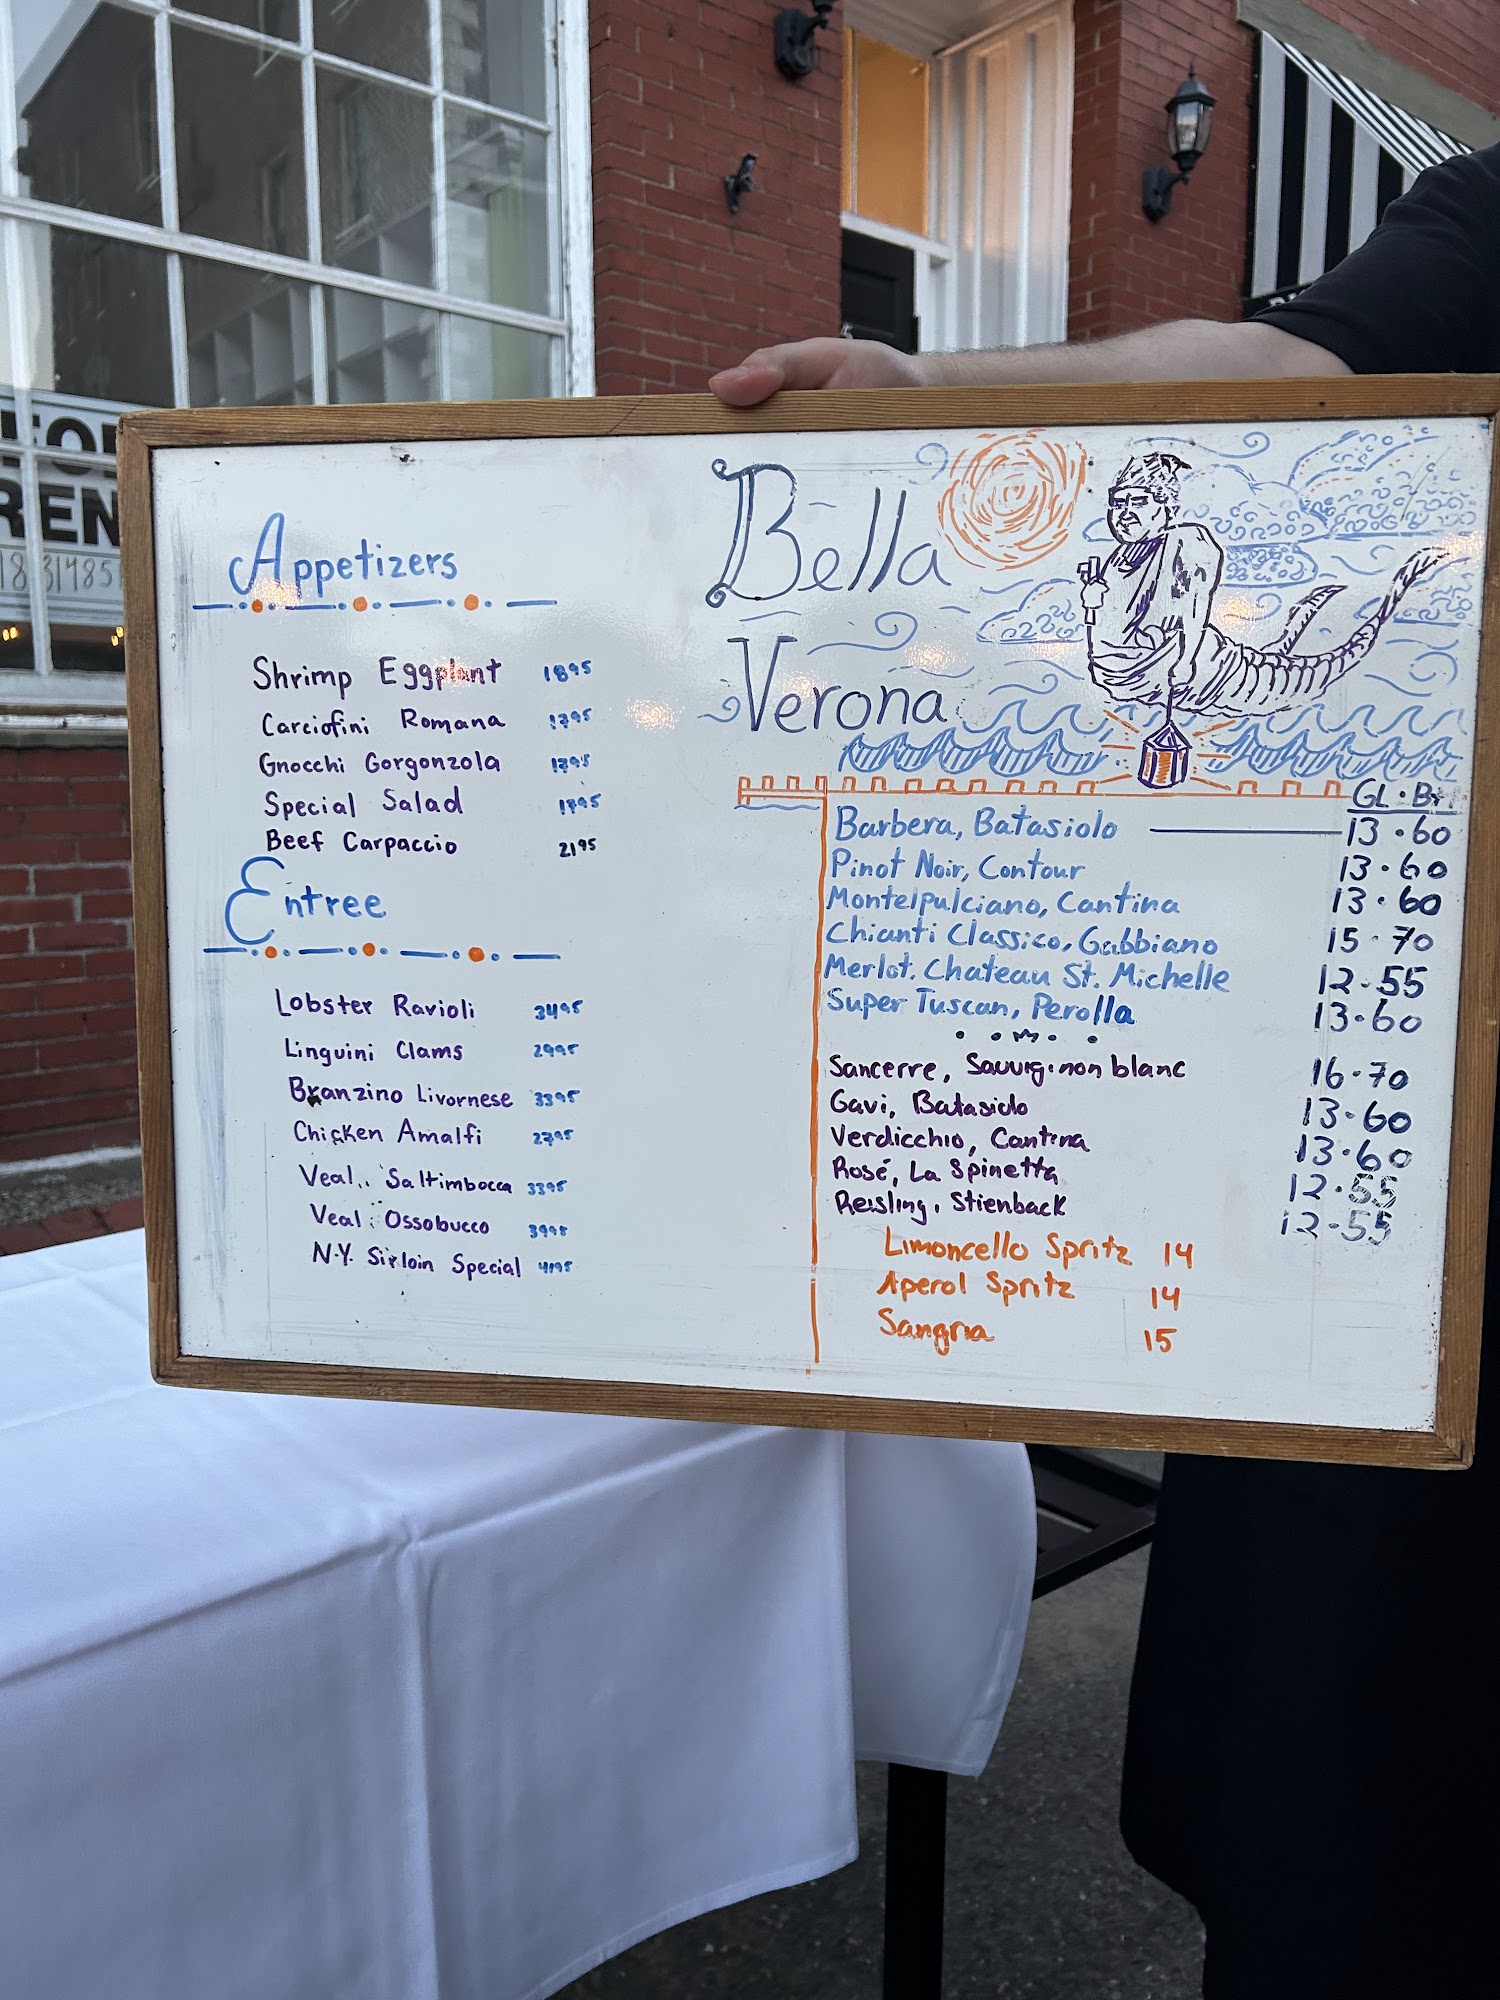 FOR
RENT
Appetizers
Shrimp Eggplant 18 95
Carciofini Romana 17 95
Gnocchi Gorgonzola 17 95
Special Salad 17 95
Beef Carpaccio 21 95
Entree
Lobster Ravioli 34 95
Linguini Clams 29 95
Branzino Livornese 33 95
Chicken Amalfi 27 95
Veal Saltimbocca 33 95
Veal Ossobucco 39 95
N.Y. Sirloin Special 41 95
Bella
Verona
GL • Btl
Barbera, Batasiolo 13 • 60
Pinot Noir, Contour 13 • 60
Montelpulciano, Cantina 13 • 60
Chianti Classico, Gabbiano 15 • 70
Merlot. Chateau St. Michelle 12 • 55
Super Tuscan, Perolla 13 • 60
Sancerre, Sauvignon blanc 16 • 70
Gavi, Batasiolo 13 • 60
Verdicchio, Cantina 13 • 60
Rosé, La Spinetta 12 • 55
Reisling, Stienback 12 • 55
Limoncello Spritz 14
Aperol Spritz 14
Sangria 15